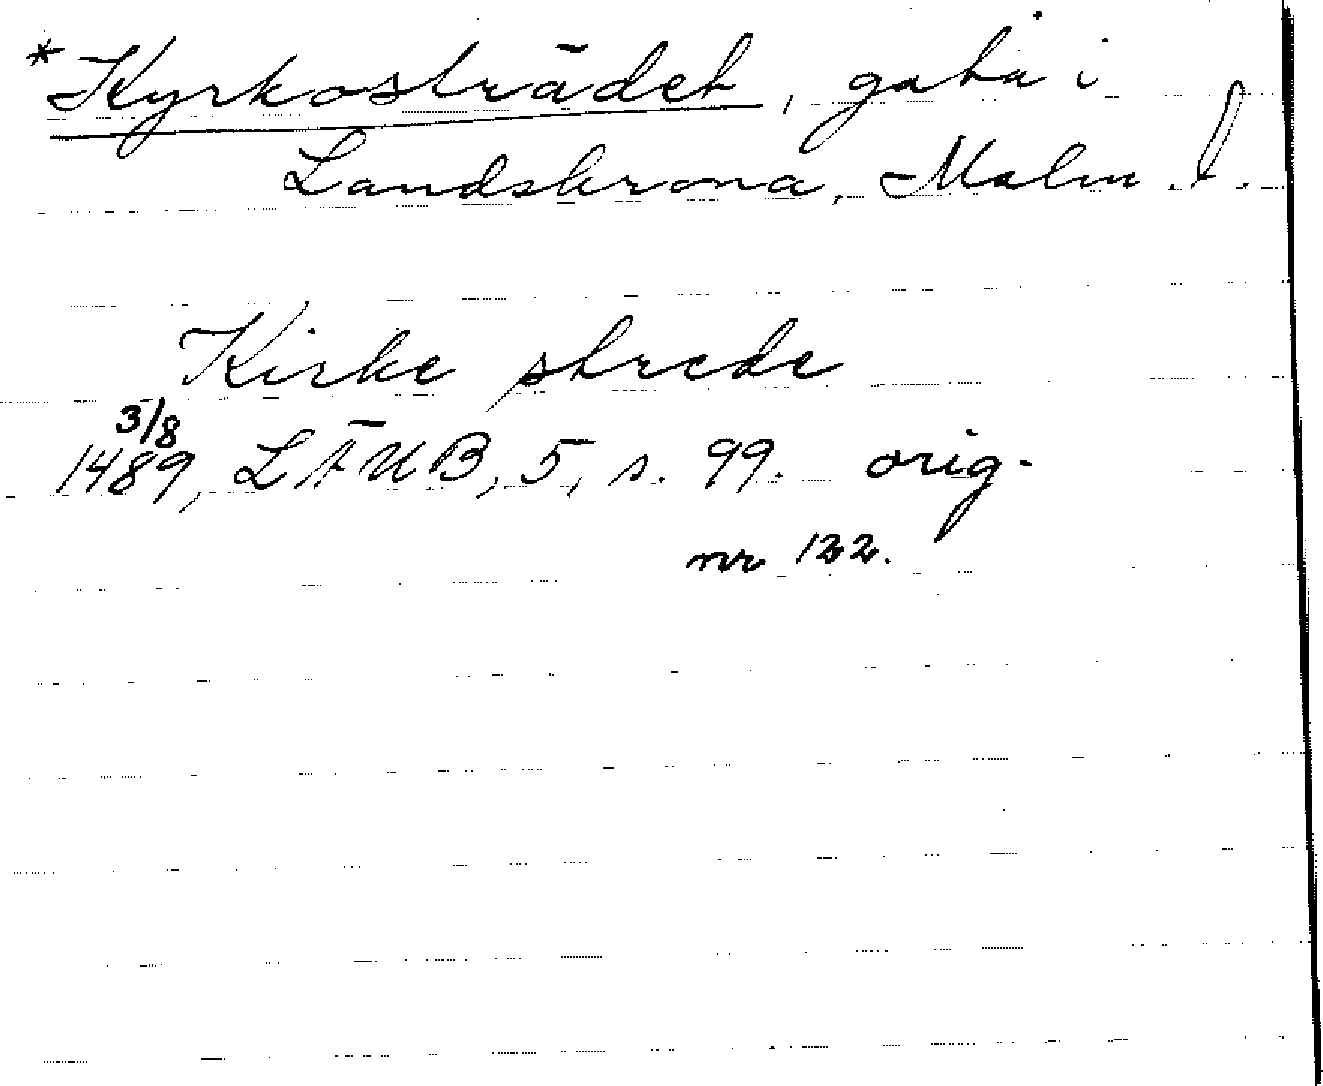 *Kyrkosträdet, gata i
Landskrona, Malm. l.
Kirke strede
3/8
1489, LÄUB, 5, s. 99. orig.
nr 122.